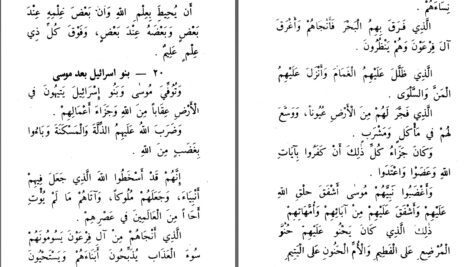 أَن يُحِيطَ بِعِلْمِ اللهِ وَأَن بَعْضَ عِلْمِهِ عِنْدَ
بَعْضٍ وَبَعْضَهُ عِنْدَ بَعْضٍ، وَفَوْقَ كُلِّ ذِي
عِلْمٍ عَلِيمٌ .
٢٠ — بنو اسرائيل بعد موسى
وَتُوُفِّيَ مُوسَى وَبَنُو إِسْرَائِيلَ يَتِيهُونَ فِي
الْأَرْضِ عِقَاباً مِنَ اللهِ وَجَزَاءَ أَعْمَالِهِمْ .
وَضَرَبَ اللهُ عَلَيْهِمُ الذِّلَّةَ وَالْمَسْكَنَةَ وَبَاءُوا
بِغَضَبٍ مِنَ اللهِ .
إِنَّهُمْ قَدْ أَسْخَطُوا اللهَ الَّذِي جَعَلَ فِيهِمْ
أَنْبِيَاءَ، وَجَعَلَهُمْ مُلُوكاً، وَآتَاهُمْ مَا لَمْ يُؤْتِ
أَحَداً مِنَ الْعَالَمِينَ فِي عَصْرِهِمْ .
الَّذِي أَنْجَاهُمْ مِنْ آلِ فِرْعَوْنَ يَسُومُونَهُمْ
سُوءَ الْعَذَابِ يُذَبِّحُونَ أَبْنَاءَهُمْ وَيَسْتَحْيُونَ
نِسَاءَهُمْ .
الَّذِي فَرَقَ بِهِمُ الْبَحْرَ فَأَنْجَاهُمْ وَأَغْرَقَ
آلَ فِرْعَوْنَ وَهُمْ يَنْظُرُونَ .
الَّذِي ظَلَّلَ عَلَيْهِمُ الْغَمَامَ وَأَنْزَلَ عَلَيْهِمُ
الْمَنَّ وَالسَّلْوَى .
الَّذِي فَجَّرَ لَهُمْ مِنَ الْأَرْضِ عُيُوناً، وَوَسَّعَ
لَهُمْ فِي مَأْكَلٍ وَمَشْرَبٍ .
وَكَانَ جَزَاءُ كُلِّ ذٰلِكَ أَنْ كَفَرُوا بِآيَاتِ
اللهِ وَعَصَوْا وَاعْتَدَوْا .
وَأَغْضَبُوا نَبِيَّهُمْ مُوسَى أَشْفَقَ خَلْقِ اللهِ
عَلَيْهِمْ وَأَشْفَقَ عَلَيْهِمْ مِنْ آبَائِهِمْ وَأُمَّهَاتِهِمْ
ذٰلِكَ الَّذِي كَانَ يَحْنُو عَلَيْهِمْ حُنُوَّ
الْمُرْضِعِ عَلَى الْفَطِيمِ وَالْأُمِّ الْحَنُونِ عَلَى الْيَتِيمِ